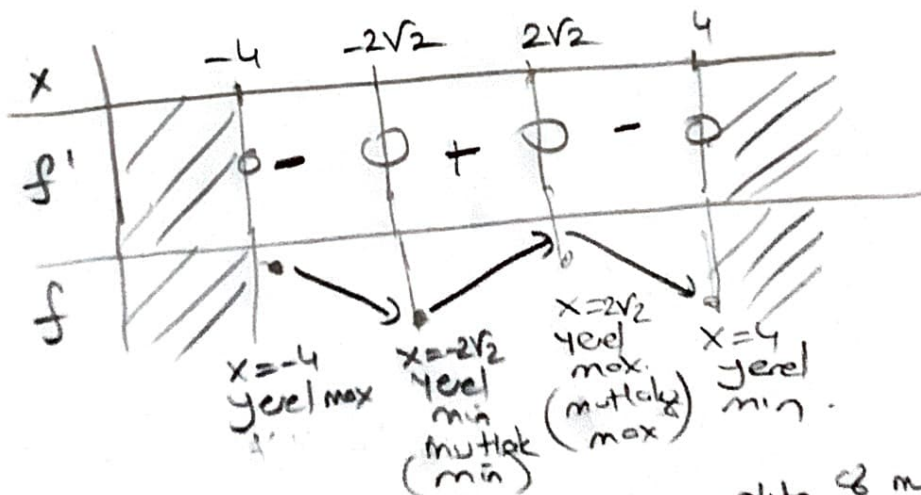 x -4 -2√2 2√2 4
f' - + -
f
x=-4
yerel max
x=-2√2
yerel
min
mutlak
(min)
x=2√2
yerel
max.
(mutlak
max)
x=4
yerel
min.